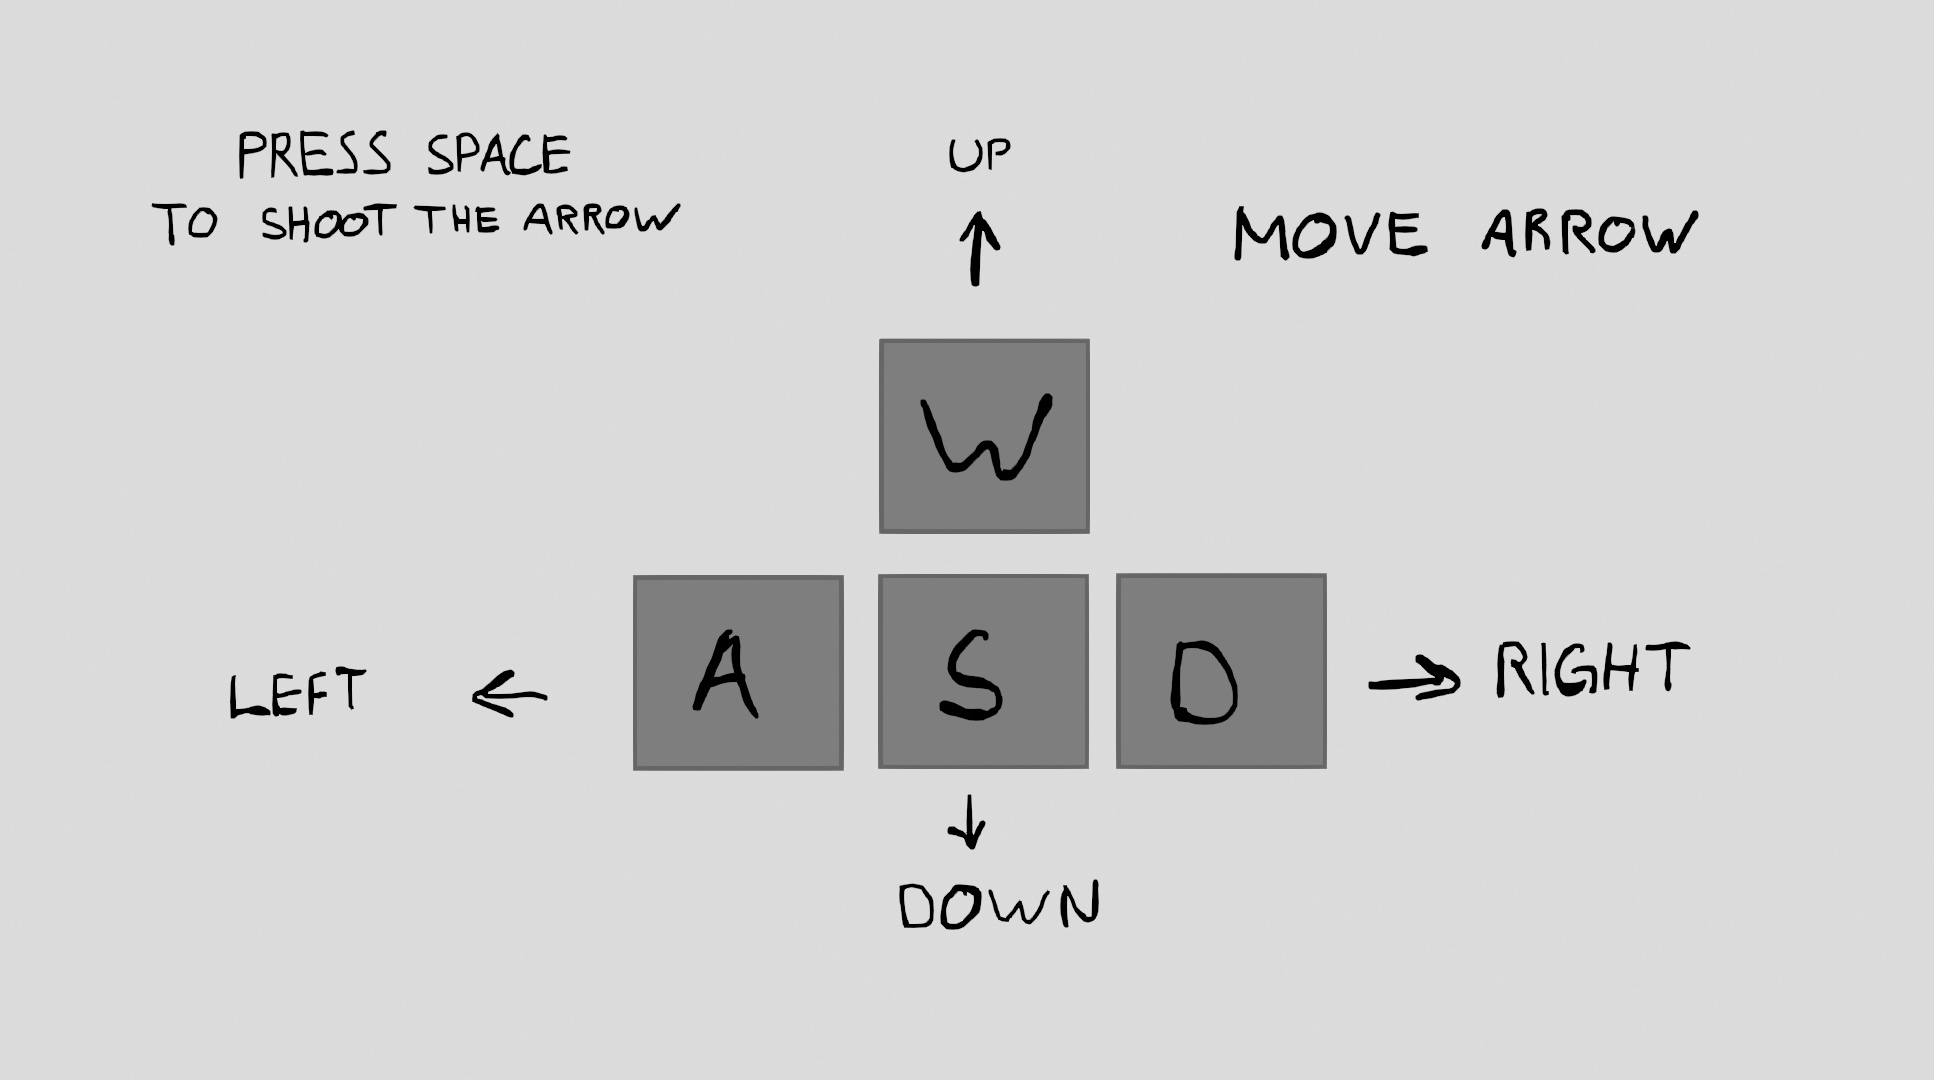 PRESS SPACE
TO SHOOT THE ARROW
UP
MOVE ARROW
W
LEFT
A
S
D
RIGHT
DOWN